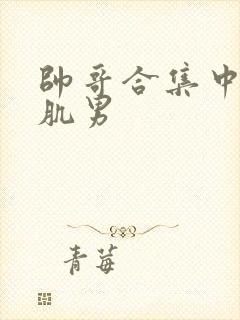 帥哥合集中
肌男
青莓